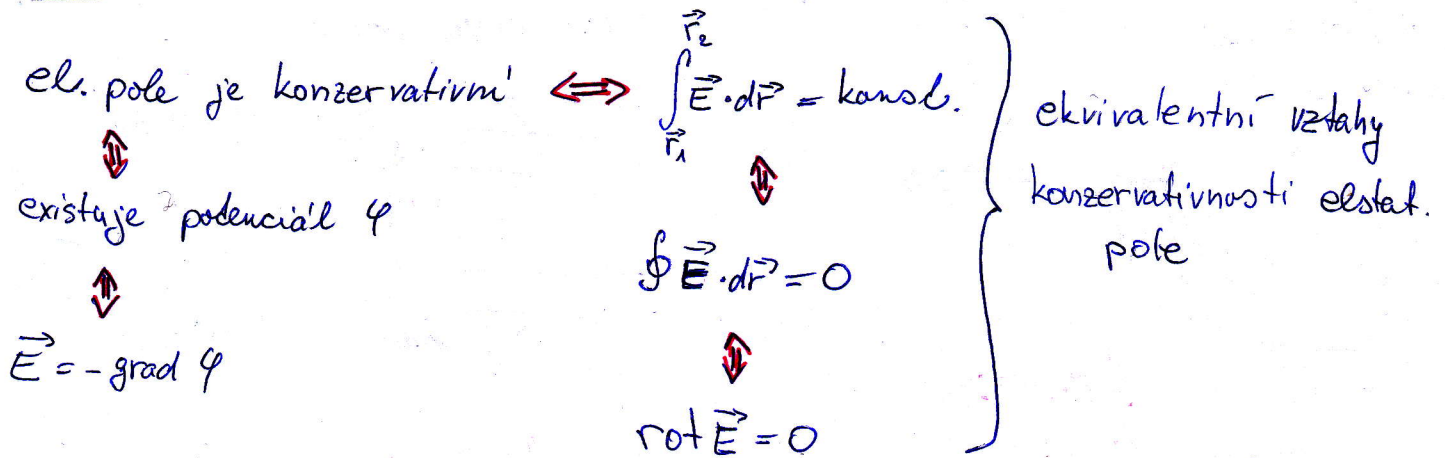 el. pole je konzervativní ⇔ ∫_{r⃗₁}^{r⃗₂} E⃗·dr⃗ = konst.
⇕
existuje potenciál φ
⇕
E⃗ = - grad φ
⇕
∮ E⃗·dr⃗ = 0
⇕
rot E⃗ = 0
ekvivalentní vztahy
konzervativnosti elstat.
pole